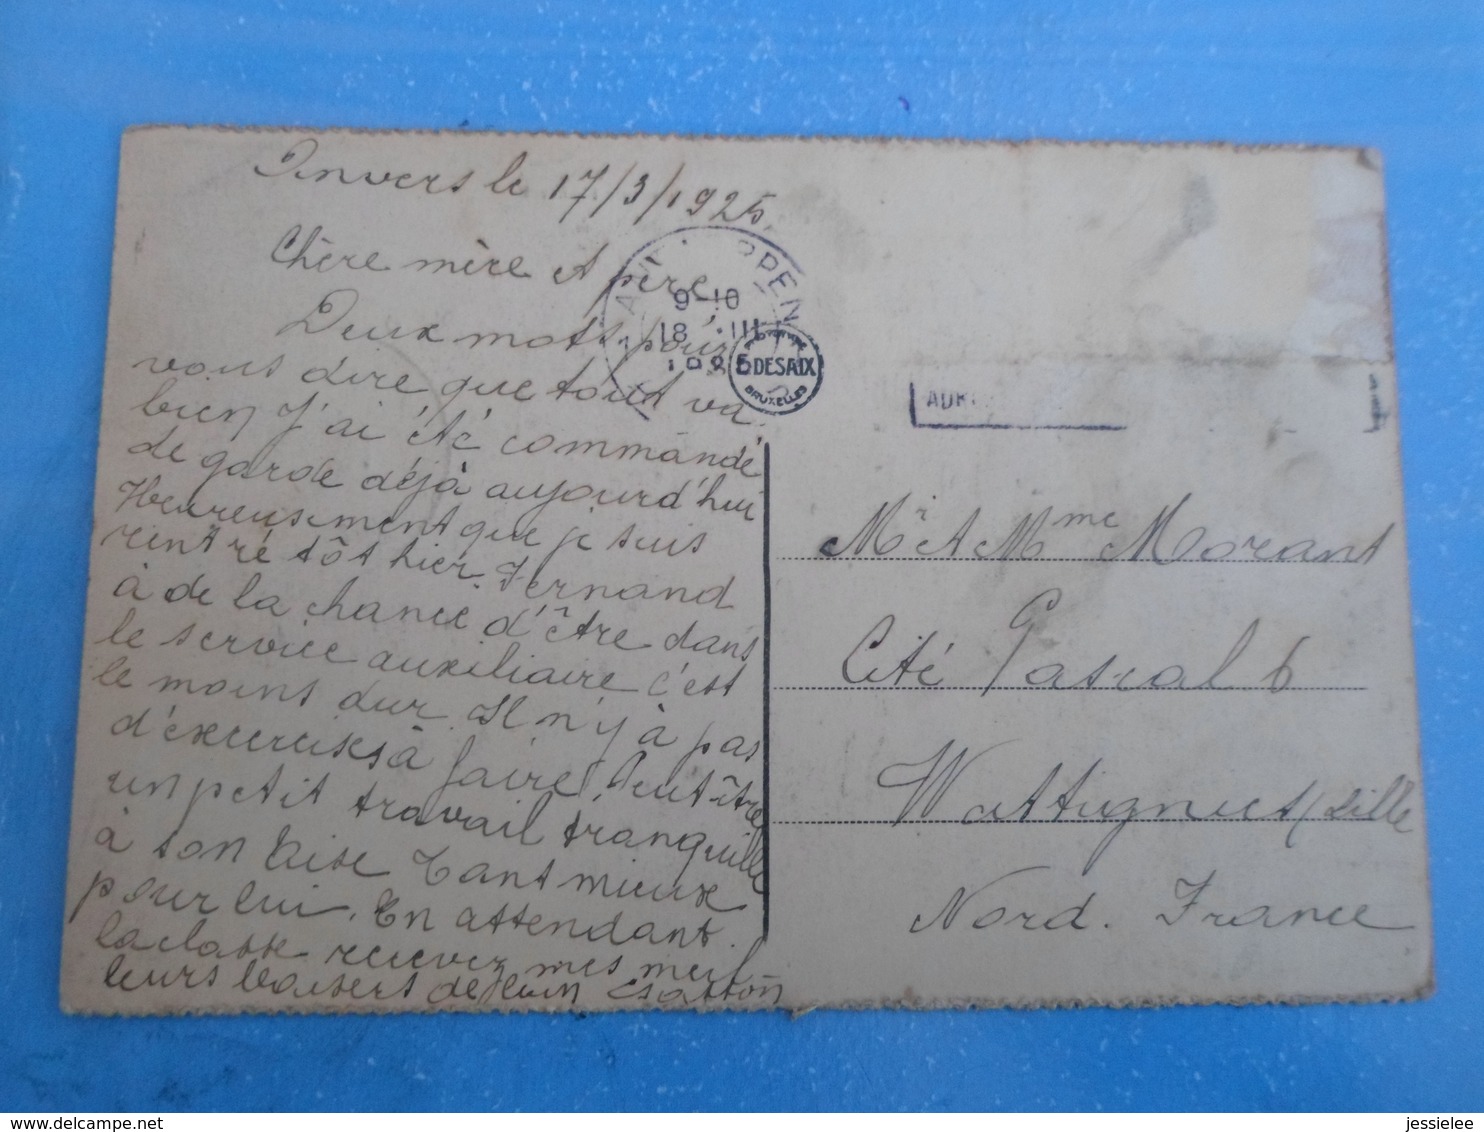 Anvers le 17/3/1925
Chère mère et père
Deux mots pour
vous dire que tout va
bien J'ai été commandé
de garde déjà aujourd'hui
Heureusement que je suis
rentré tôt hier. Fernand
à de la chance d'être dans
le service auxiliaire c'est
le moins dur. Il n'y à pas
d'exercises à faire. Peut-être
un petit travail tranquille
à son aise Tant mieux
pour lui. En attendant
la classe recevez mes meil
leurs baisers de
9-10
18 III
DESAIX
BRUXELLES
Mr et Mme Morant
Cité Pascal 6
Wattignies/Lille
Nord. France
jessielee